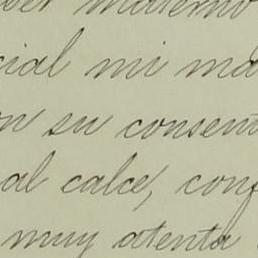 materno
cial mi ma
on su consent
al calce, conf
muy atenta